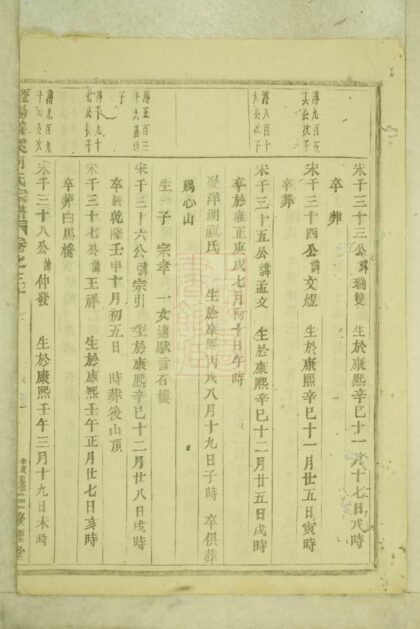 傳九百五
其公次子
宋千三十三公諱瑞雙 生於康熙辛巳十一月十七日戌時
卒 葬
宋千三十四公諱文煜 生於康熙辛巳十一月廿五日寅時
卒 葬
傳八百十
公次子
宋千三十五公諱孟文 生於康熙辛巳十二月廿五日戌時
卒於雍正庚戌七月初十日午時
娶洋湖祝氏 生於康熙丙戌八月十九日子時 卒俱葬
馬心山
生一子 宗孝 一女適 石樓
傳五百三
子
宋千三十六公諱宗引 生於康熙辛巳十二月廿八日戌時
卒於乾隆壬申十月初五日 時葬後山頂
傳
公長子
宋千三十七公諱王祥 生於康熙壬午正月廿七日亥時
卒葬白馬橋
傳九百九
十 公次
宋千三十八公諱仲發 生於康熙壬午三月十九日未時
氏宗譜 卷之
堂